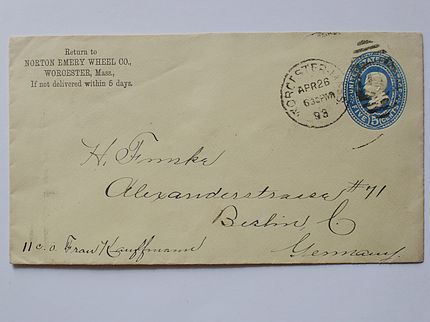 Return to
NORTON EMERY WHEEL CO.,
WORCESTER, Mass.,
If not delivered within 5 days.
WORCESTER
APR 26
630PM
93
UNITED STATES
FIVE 5 CENTS
H. Funke
Alexanderstrasse #71
Berlin, C
Germany.
11 c. o. Frau Kauffmann